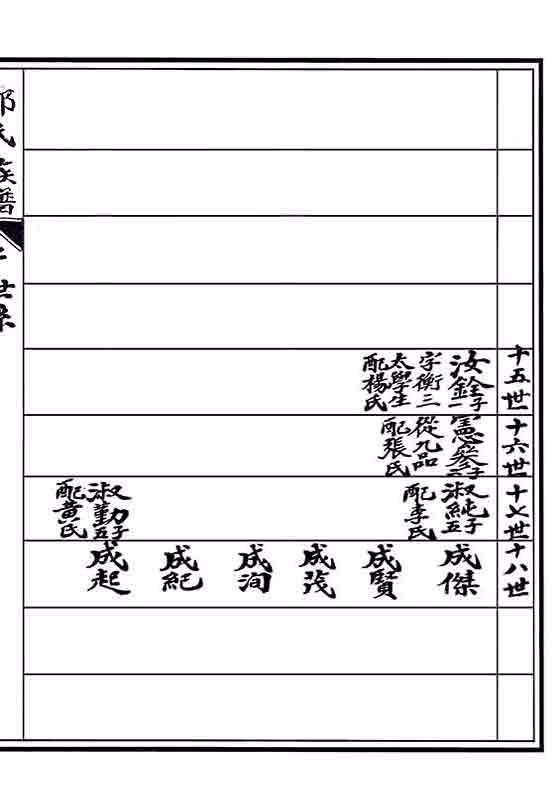 十五世
汝銓 子一
字衡三
太學生
配楊氏
十六世
憲參 子
從九品
配張氏
十七世
淑純 子五
配李氏
淑勤 子五
配黃氏
十八世
成傑
成賢
成茂
成泂
成紀
成起
氏族譜
世系